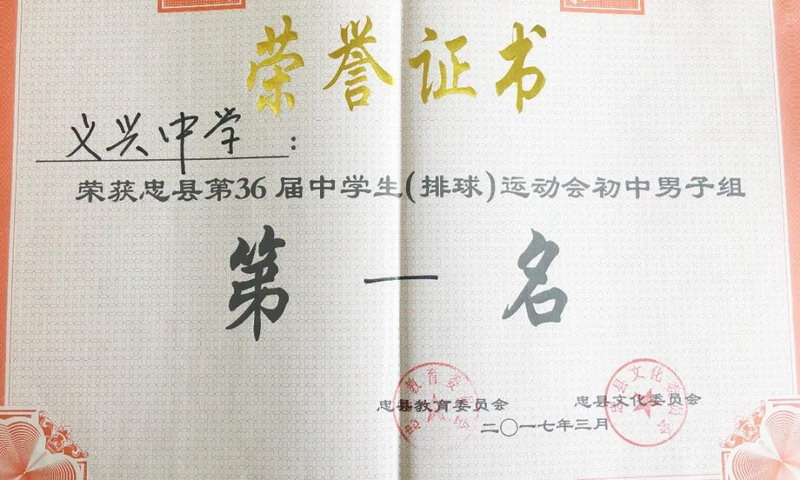 荣誉证书
义兴中学：
荣获忠县第36届中学生(排球)运动会初中男子组
第一名
忠县教育委员会 忠县文化委员会
二〇一七年三月